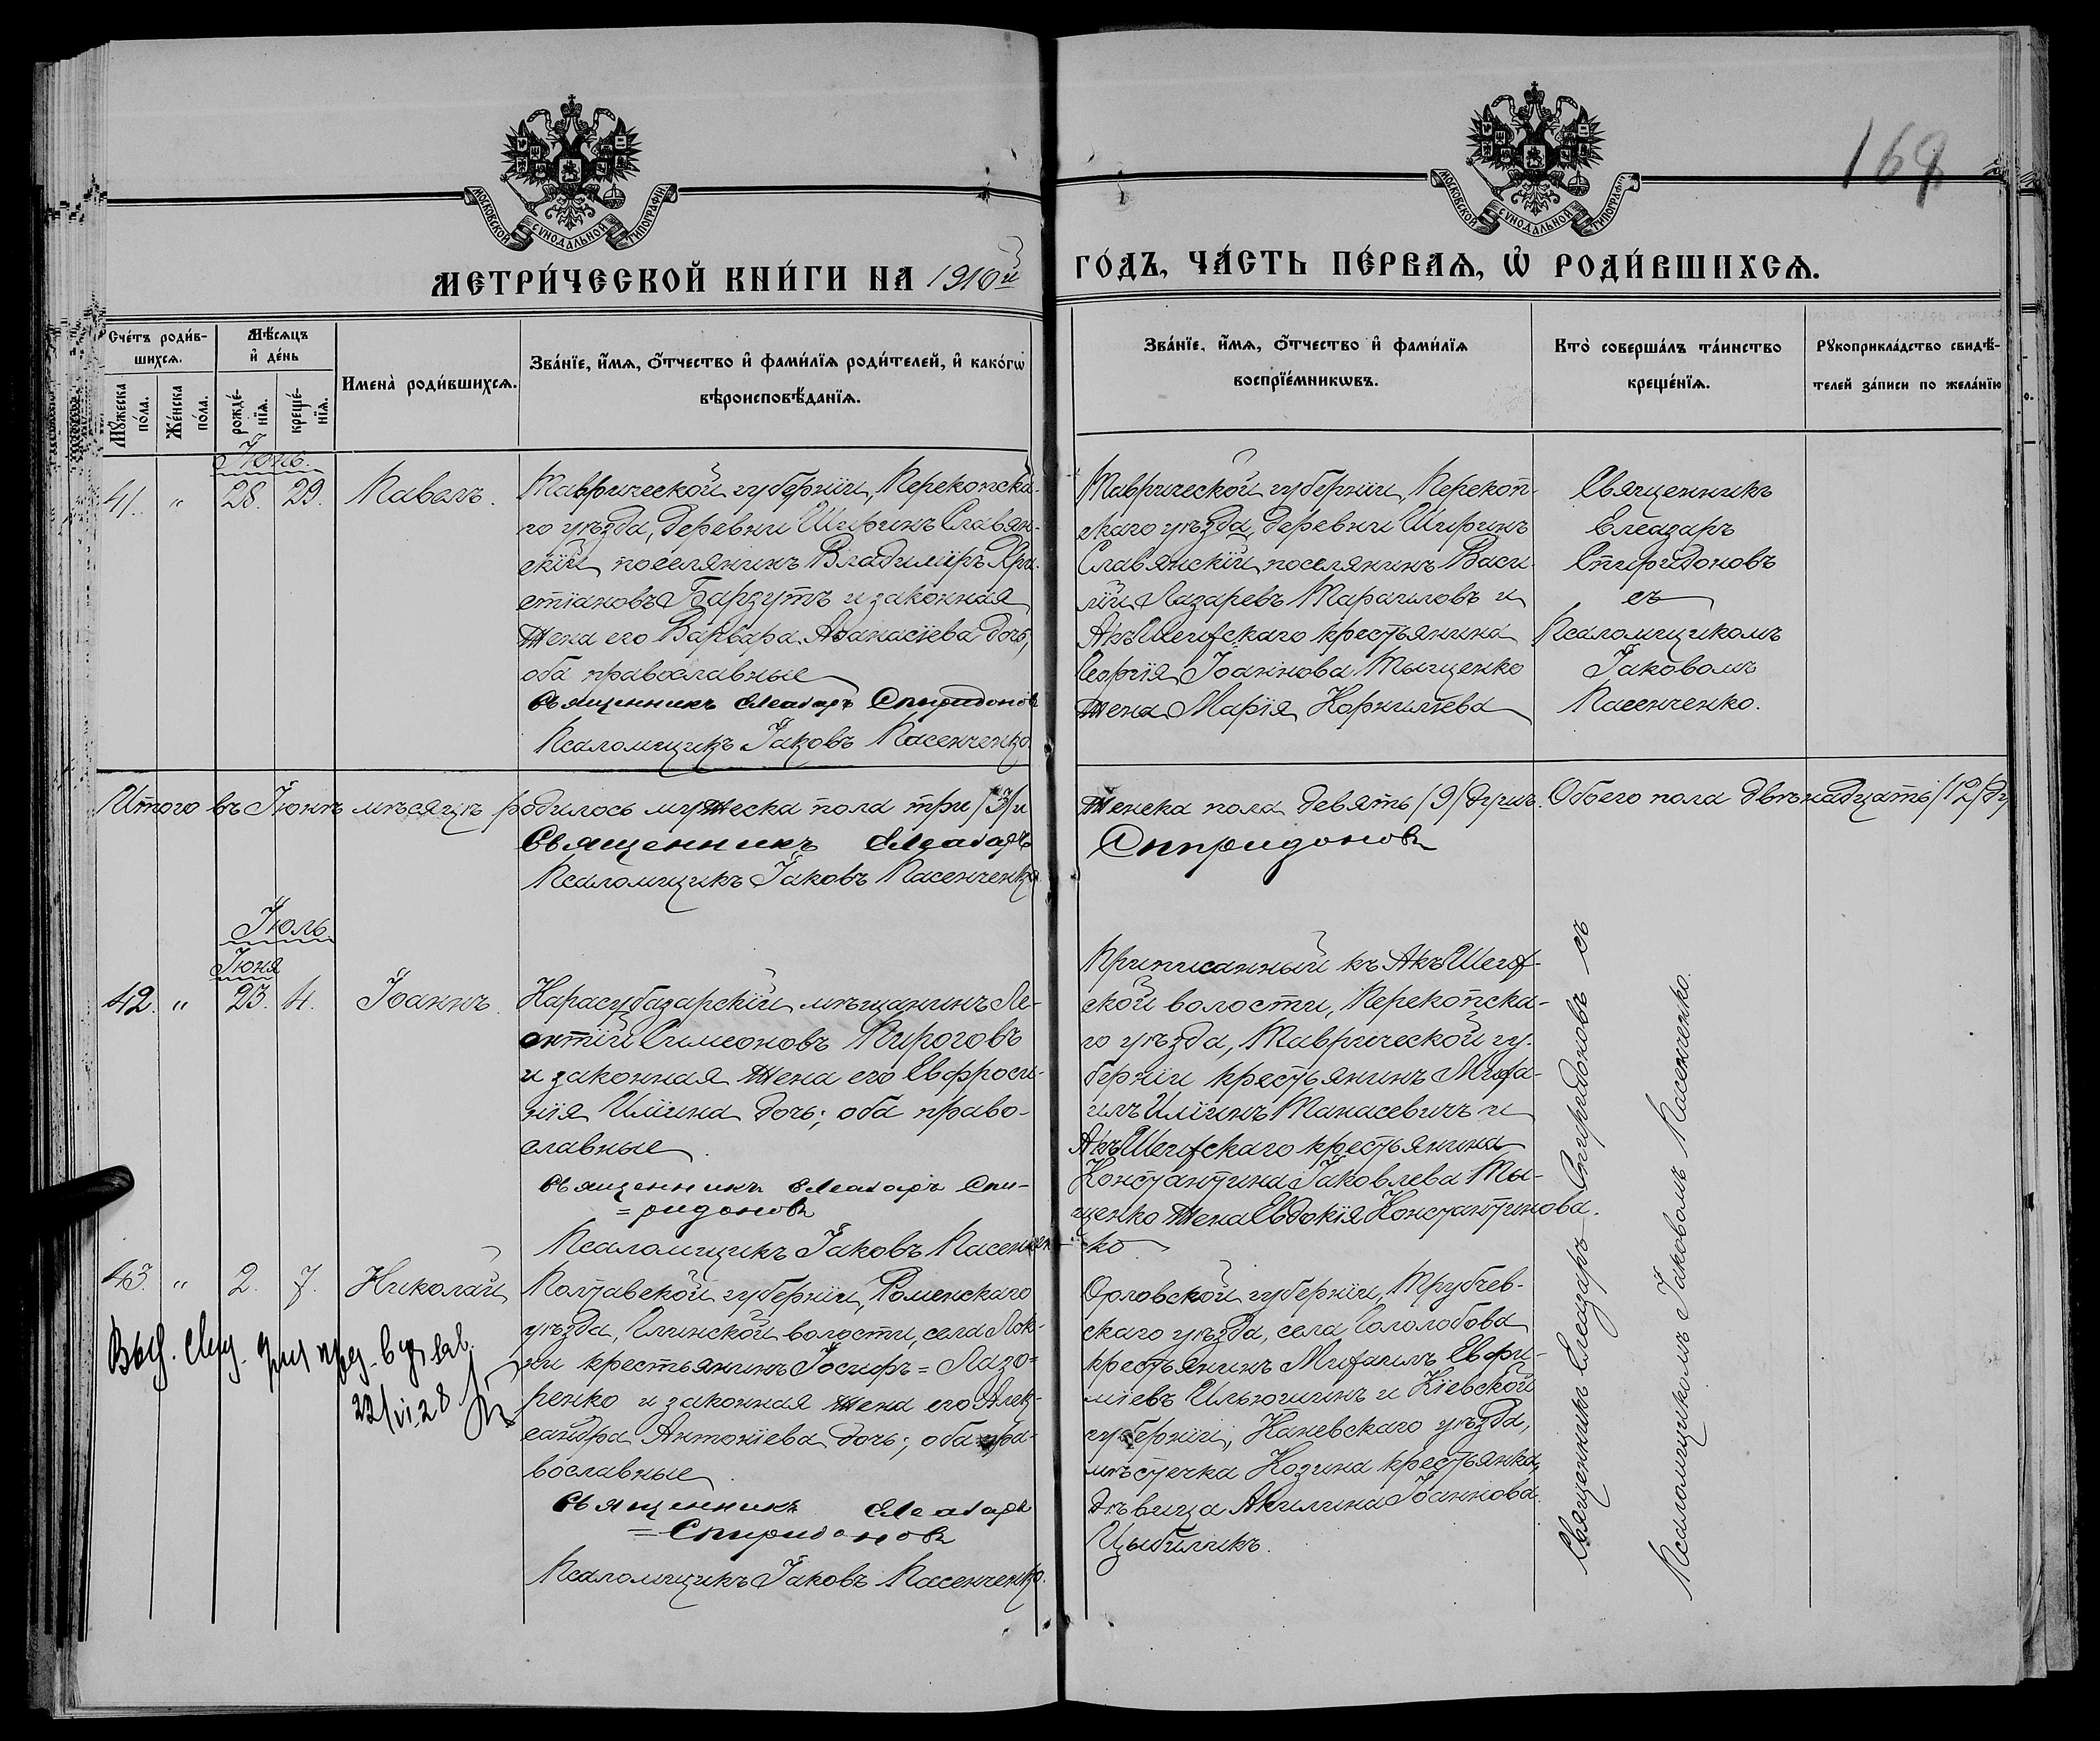 168
МОСКОВСКОЙ СУНОДАЛЬНОЙ ТИПОГРАФІИ
МОСКОВСКОЙ СУНОДАЛЬНОЙ ТИПОГРАФІИ
МЕТРИ́ЧЕСКОЙ КНИ́ГИ НА 1910й
ГО́ДЪ, ЧА́СТЬ ПЕ́РВАѦ, Ѽ РОДИ́ВШИХСѦ.
Сче́тъ роди́в-
шихсѧ.
Мꙋ́жеска по́ла.
Же́нска по́ла.
Мѣ́сѧцъ
и҆ де́нь
рожде́-
нїѧ.
креще́-
нїѧ.
Имена̀ роди́вшихсѧ.
Зва́нїе, и҆́мѧ, ѻ҆́тчество и҆ фами́лїѧ роди́телей, и҆ како́гѡ
вѣроисповѣ́данїѧ.
Зва́нїе, и҆́мѧ, ѻ҆́тчество и҆ фами́лїѧ
воспрїе́мникѡвъ.
Кто̀ соверша́лъ та́инство
креще́нїѧ.
Рꙋкоприкла́дство свидѣ́-
телей за́писи по жела́нїю
Іюнь.
41. " 28. 29. Павелъ.
Таврической губерніи, Перекопска-
го уѣзда, деревни Ширинъ Славян-
скій поселянинъ Владиміръ Хри-
стіановъ Баргутъ и законная
жена его Варвара Аѳанасіева дочь,
оба православные
Священникъ Елеазаръ Спиридоновъ
Псаломщикъ Іаковъ Пасенченко
Таврической губерніи, Перекоп-
скаго уѣзда, деревни Ширинъ
Славянскій поселянинъ Васи-
лій Лазаревъ Тарагиловъ и
Акъ Шехскаго крестьянина
Георгія Іоаннова Тыщенко
жена Марія Корниліева
Священникъ
Елеазаръ
Спиридоновъ
съ
Псаломщикомъ
Іаковомъ
Пасенченко.
Итого въ Іюнѣ мѣсяцѣ родилось мужеска пола три /3/ и
женска пола девять /9/ душъ. Обоего пола двѣнадцать /12/ ду
Священникъ Елеазаръ
Спиридоновъ
Псаломщикъ Іаковъ Пасенченко
Іюль
Іюня
42. " 23. 4. Іоаннъ.
Карасубазарскій мѣщанинъ Ле-
онтій Симеоновъ Пироговъ
и законная жена его Евфроси-
нія Иліина дочь; оба право-
славные.
Священникъ Елеазаръ Спи-
=ридоновъ
Псаломщикъ Іаковъ Пасенчен-
ко
Приписанный къ Акъ Шех-
ской волости, Перекопска-
го уѣзда, Таврической гу-
берніи крестьянинъ Миха-
илъ Иліинъ Танасевичъ и
Акъ Шехскаго крестьянина
Константина Іаковлева Ты-
щенко жена Евдокія Константинова.
43. " 2. 7. Николай
Полтавской губерніи, Роменскаго
уѣзда, Глинской волости, села Лок-
ни крестьянинъ Іосифъ = Лазо=
ренко и законная жена его Алек-
сандра Антоніева дочь; оба пра-
вославные.
Священникъ Елеазаръ
=Спиридоновъ
Псаломщикъ Іаковъ Пасенченко.
22/VI 28
Орловской губерніи, Трубчев-
скаго уѣзда, села Гололобова
крестьянинъ Михаилъ Евфи-
міевъ Ильюшинъ и Кіевской
губерніи, Каневскаго уѣзда,
мѣстечка Козина крестьянка,
дѣвица Акилина Іоаннова
Цыбиликъ.
Священникъ Елеазаръ Спиридоновъ съ
Псаломщикомъ Іаковомъ Пасенченко.